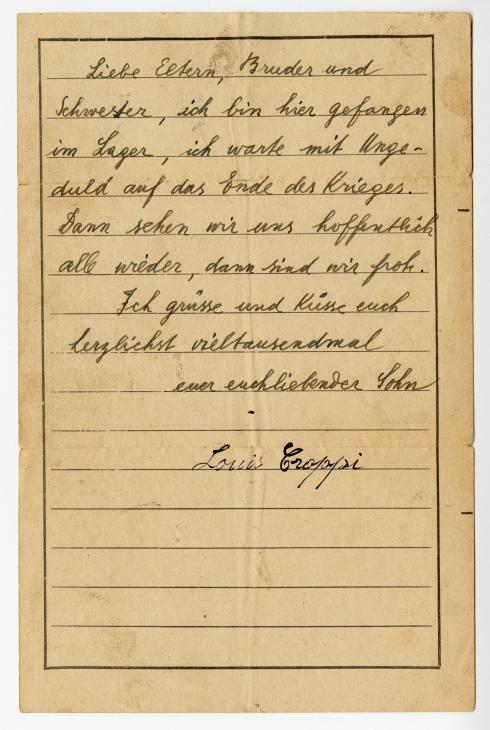 Liebe Eltern, Bruder und
Schwester, ich bin hier gefangen
im Lager, ich warte mit Unge-
duld auf das Ende des Krieges.
Dann sehen wir uns hoffentlich
all wieder, dann sind wir froh.
Ich grüsse und Küsse euch
herzlichst vieltausendmal
euer euchliebender Sohn
Louis Croppi